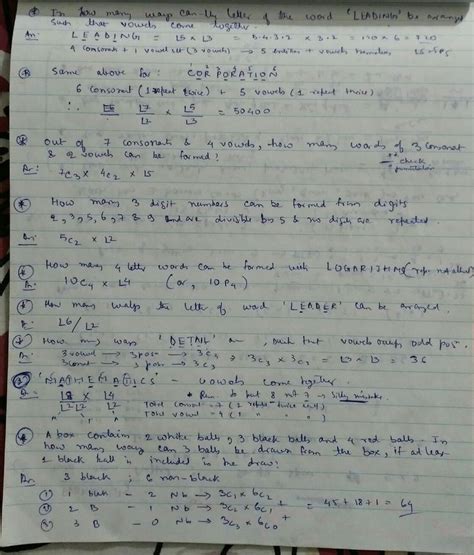 In how many ways can the letter of the word 'LEADING' be arranged
such that vowels come together.
An: LEADING = L5 x L3 = 5.4.3.2 x 3.2 = 120 x 6 = 720
4 consonants + 1 vowel set (3 vowels) → 5 entities + vowels themselves
Same above for: CORPORATION
6 consonant (1 repeat twice) + 5 vowels (1 repeat thrice)
L7/L2 x L5/L3 = 50400
Out of 7 consonants & 4 vowels, how many words of 3 consonant
& 2 vowels can be formed?
check
7C3 x 4C2 x L5
How many 3 digit numbers can be formed from digits
2, 3, 5, 6, 7 & 9 and are divisible by 5 & no digits are repeated.
5C2 x L2
How many 4 letter words can be formed with LOGARITHMS
10C4 x L4 (or, 10P4)
How many ways the letter of word 'LEADER' can be arranged.
L6/L2
How many ways 'DETAIL' such that vowels occupy odd pos.
3 vowel → 3 pos → 3C3
→ 3 pos → 3C3 = L3 x L3 = 36
'MATHEMATICS' - vowels come together.
L8/L2 L2 x L4/L2 * Rem. to put 8 not 7 - Silly mistake.
Total vowel = 4 (1
A box contain 2 white balls, 3 black balls and 4 red balls. In
how many ways can 3 balls be drawn from the box, if at least
1 black ball is included in the draw?
3 black; 6 non-black
① 1 Blk - 2 Nb → 3C1 x 6C2 +
② 2 B - 1 Nb → 3C2 x 6C1 + = 45 + 18 + 1 = 64
③ 3 B - 0 Nb → 3C3 x 6C0